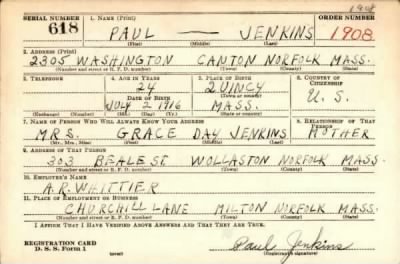 1908
SERIAL NUMBER 1. NAME (Print) ORDER NUMBER
618 PAUL — JENKINS 1908
(First) (Middle) (Last)
2. ADDRESS (Print)
2305 WASHINGTON CANTON NORFOLK MASS.
(Number and street or R. F. D. number) (Town) (County) (State)
3. TELEPHONE 4. AGE IN YEARS 5. PLACE OF BIRTH 6. COUNTRY OF CITIZENSHIP
24 QUINCY
DATE OF BIRTH (Town or county) U. S.
JULY 2 1916 MASS.
(Exchange) (No.) (Mo.) (Day) (Yr.) (State or country)
7. NAME OF PERSON WHO WILL ALWAYS KNOW YOUR ADDRESS 8. RELATIONSHIP OF THAT PERSON
MRS. GRACE DAY JENKINS MOTHER
(Mr., Mrs., Miss) (First) (Middle) (Last)
9. ADDRESS OF THAT PERSON
303 BEALE ST WOLLASTON NORFOLK MASS.
(Number and street or R. F. D. number) (Town) (County) (State)
10. EMPLOYER'S NAME
A.R. WHITTIER
11. PLACE OF EMPLOYMENT OR BUSINESS
CHURCHILL LANE MILTON NORFOLK MASS.
(Number and street or R. F. D. number) (Town) (County) (State)
I AFFIRM THAT I HAVE VERIFIED ABOVE ANSWERS AND THAT THEY ARE TRUE.
REGISTRATION CARD
D. S. S. Form 1 (over) Paul Jenkins
(Registrant's signature)